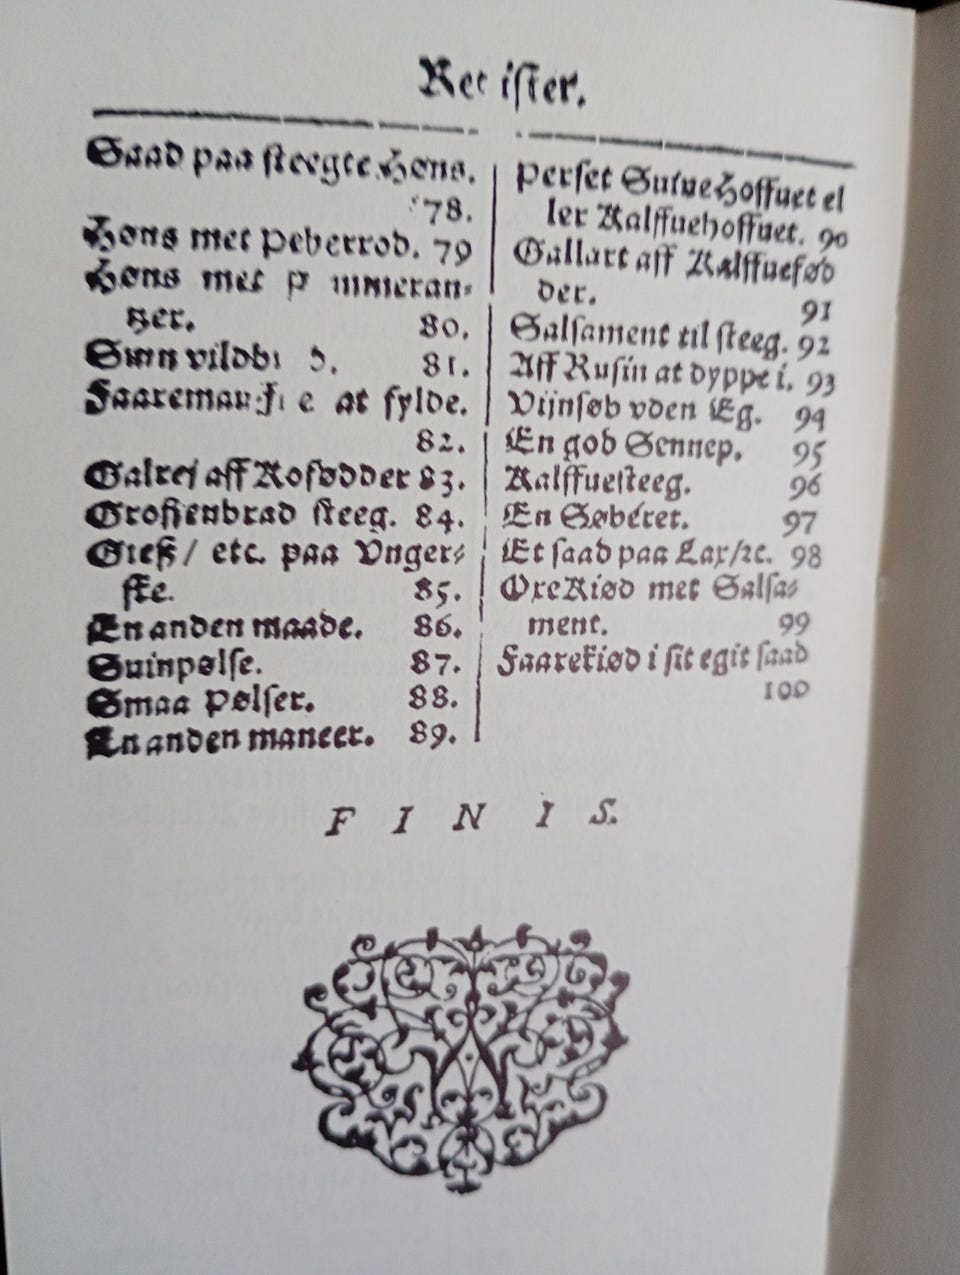 Register.
Saad paa steegte Høns.
78.
Høns met Peberrod. 79
Høns met P mmeran⸗
tzer. 80.
vildbr d. 81.
at fylde.
82.
Galrej aff Kosødder 83.
steeg. 84.
etc. paa Vnger⸗
ske. 85.
En anden maade. 86.
Suinpølse. 87.
Smaa Pølser. 88.
En anden maneer. 89.
Perset SuineHoffuet el
ler Kalffuehoffuet. 90
Gallart aff Kalffuefød
der. 91
Salsament til steeg. 92
Aff Rusin at dyppe i. 93
Vijnsøb vden Eg. 94
En god Sennep. 95
Kalffuesteeg. 96
En Søbéret. 97
Et saad paa Lax/ꝛc. 98
OxeKiød met Salsa⸗
ment. 99
Faarekiød i sit egit saad
100
FINIS.